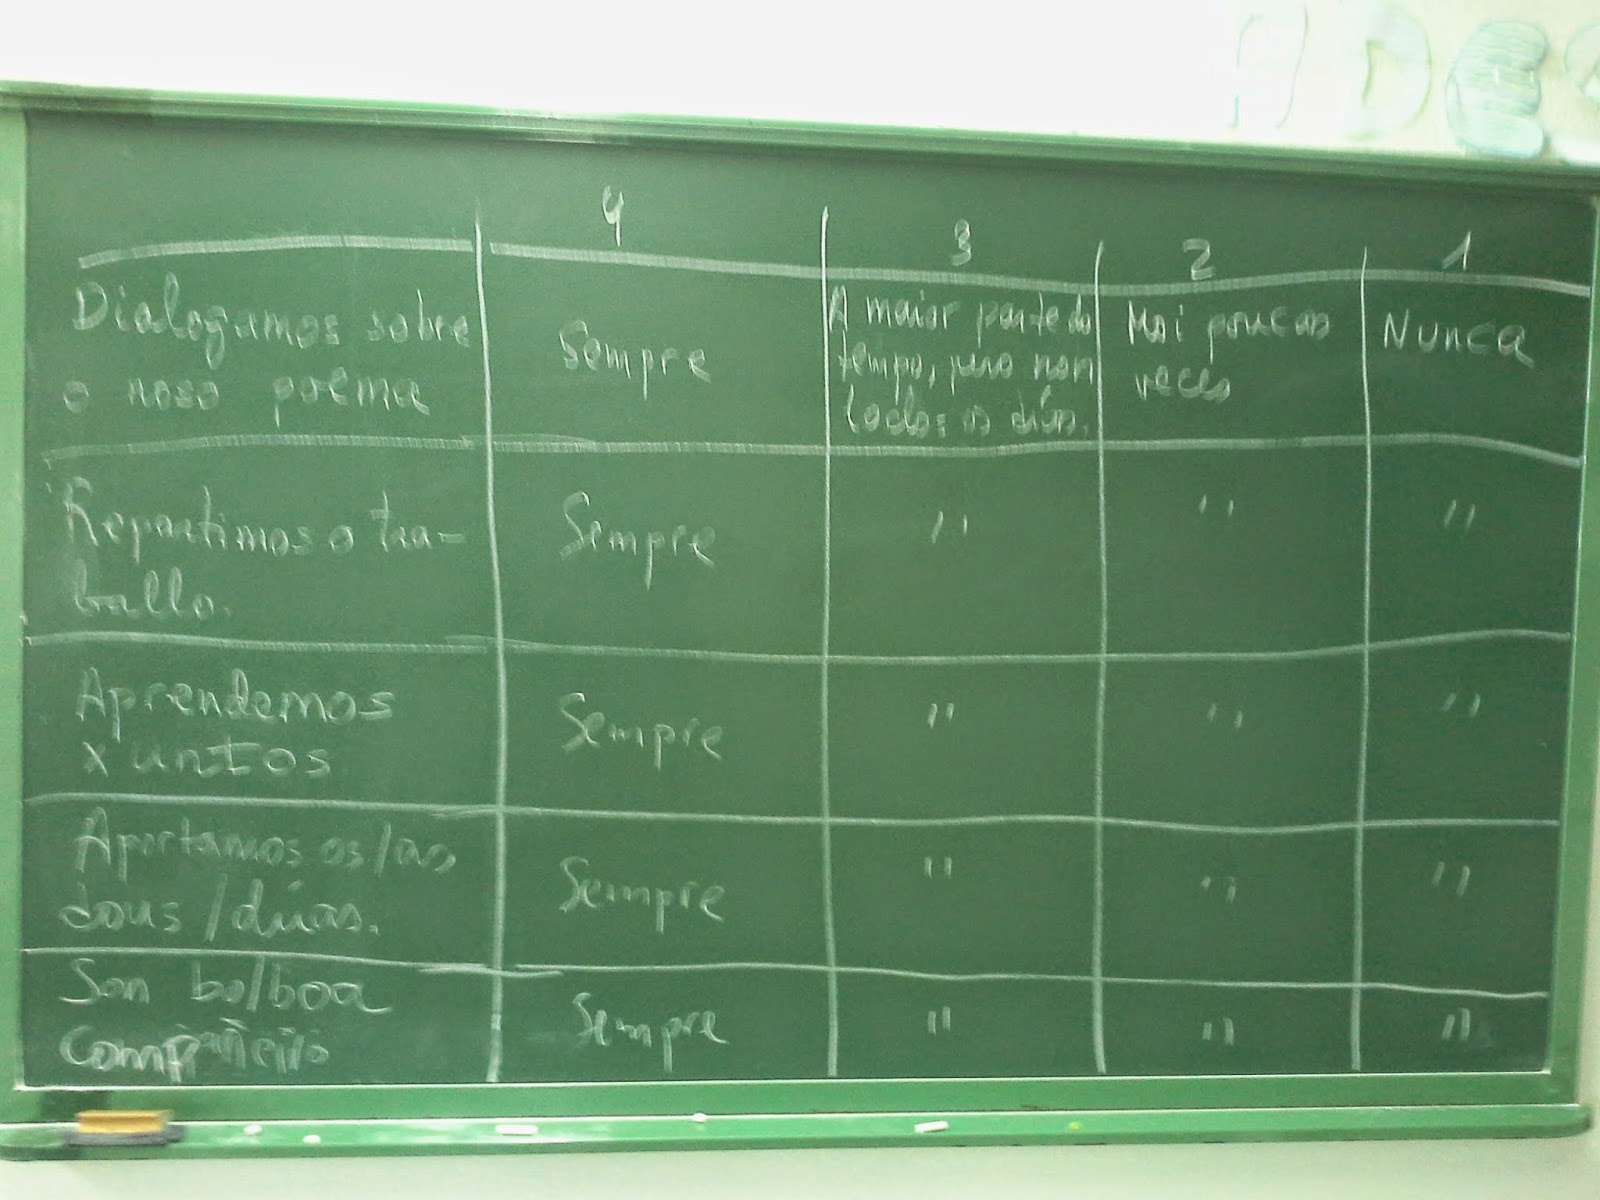 ADE
4 3 2 1
Dialogamos sobre
o noso poema
Sempre
A maior parte do
tempo, pero non
todos os días.
Moi poucas
veces
Nunca
Repartimos o tra-
ballo.
Sempre
" " "
Aprendemos
xuntos
Sempre
" " "
Aportamos os/as
dous/dúas.
Sempre
" " "
Son bo/boa
compañeiro
Sempre
" " "